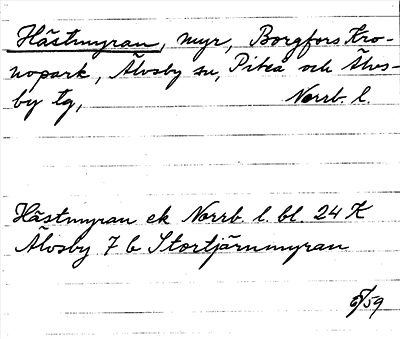 Hästmyran, myr, Borgfors Kro-
nopark, Älvsby sn, Piteå och Älvs-
by tg, Norrb. l.
Hästmyran ek Norrb. l. bl. 24 K
Älvsby 7 b Stortjärnmyran